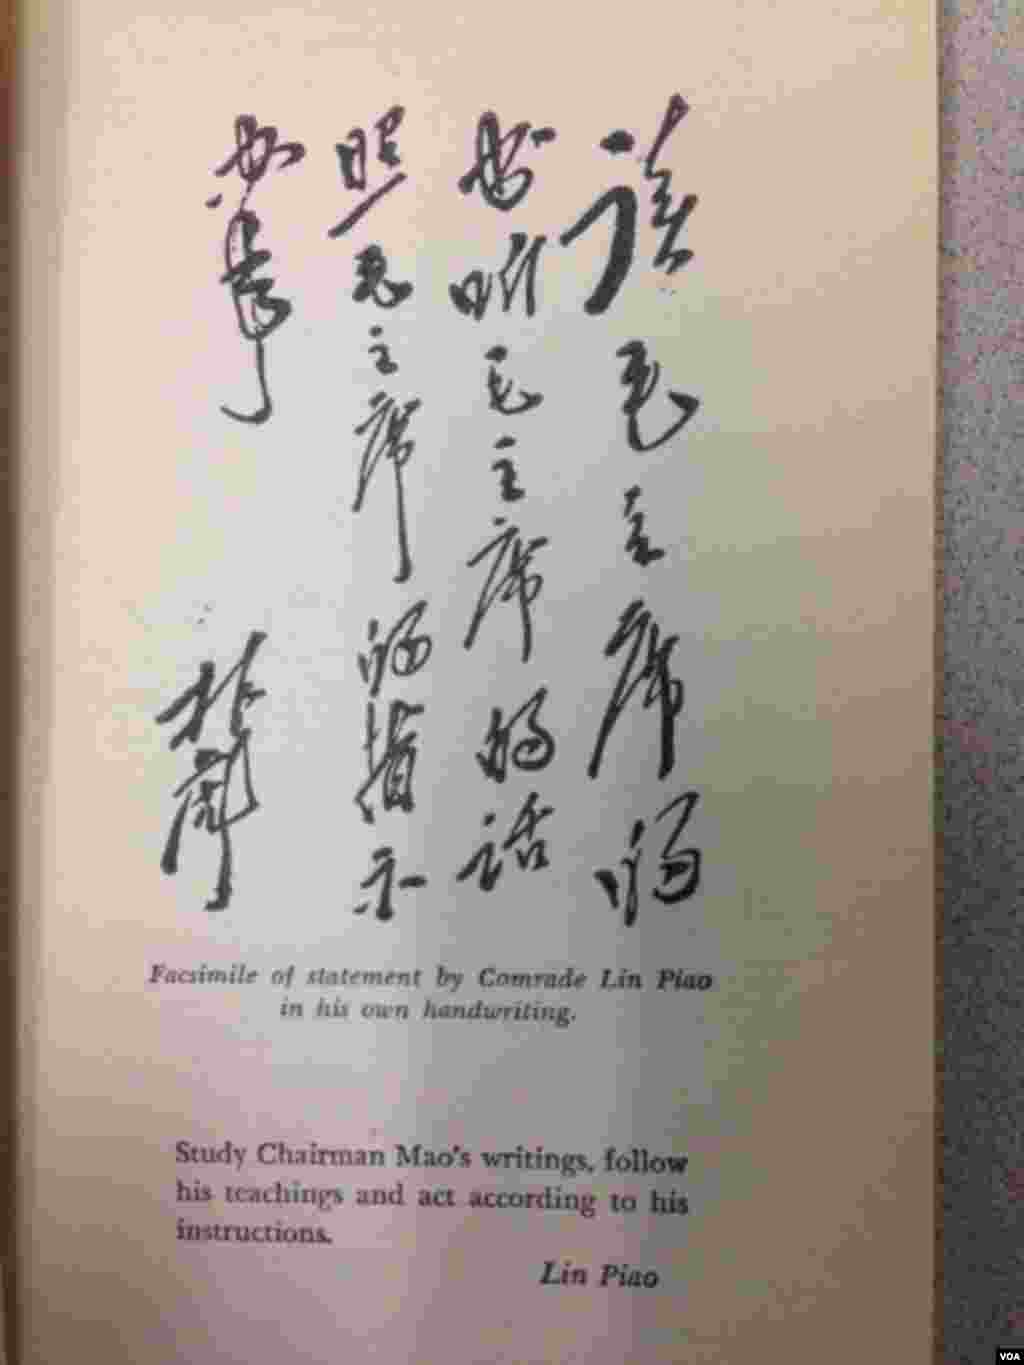 读毛主席的
书听毛主席的话
照毛主席的指示
办事
林彪
Facsimile of statement by Comrade Lin Piao
in his own handwriting.
Study Chairman Mao's writings, follow
his teachings and act according to his
instructions.
Lin Piao
VOA